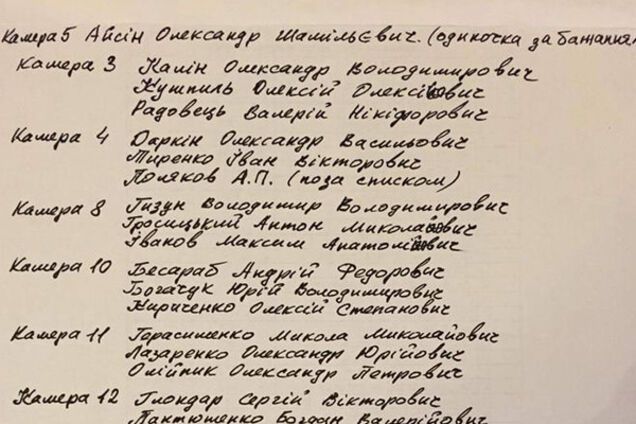 Камера 5 Айсін Олександр Шамільєвич. (одиночка за бажанням
Камера 3 Калін Олександр Володимирович
Кушпиль Олексій Олексійович
Радовець Валерій Нікіфорович
Камера 4 Даркін Олександр Васильович
Тиренко Іван Вікторович
Поляков А.П. (поза списком)
Камера 8 Гизун Володимир Володимирович
Гросицький Антон Миколайович
Іванов Максим Анатолійович
Камера 10 Бесараб Андрій Федорович
Богачук Юрій Володимирович
Кириченко Олексій Степанович
Камера 11 Герасименко Микола Миколайович
Лазаренко Олександр Юрійович
Олійник Олександр Петрович
Камера 12 Глондар Сергій Вікторович
Пантюшенко Богдан Валерійович